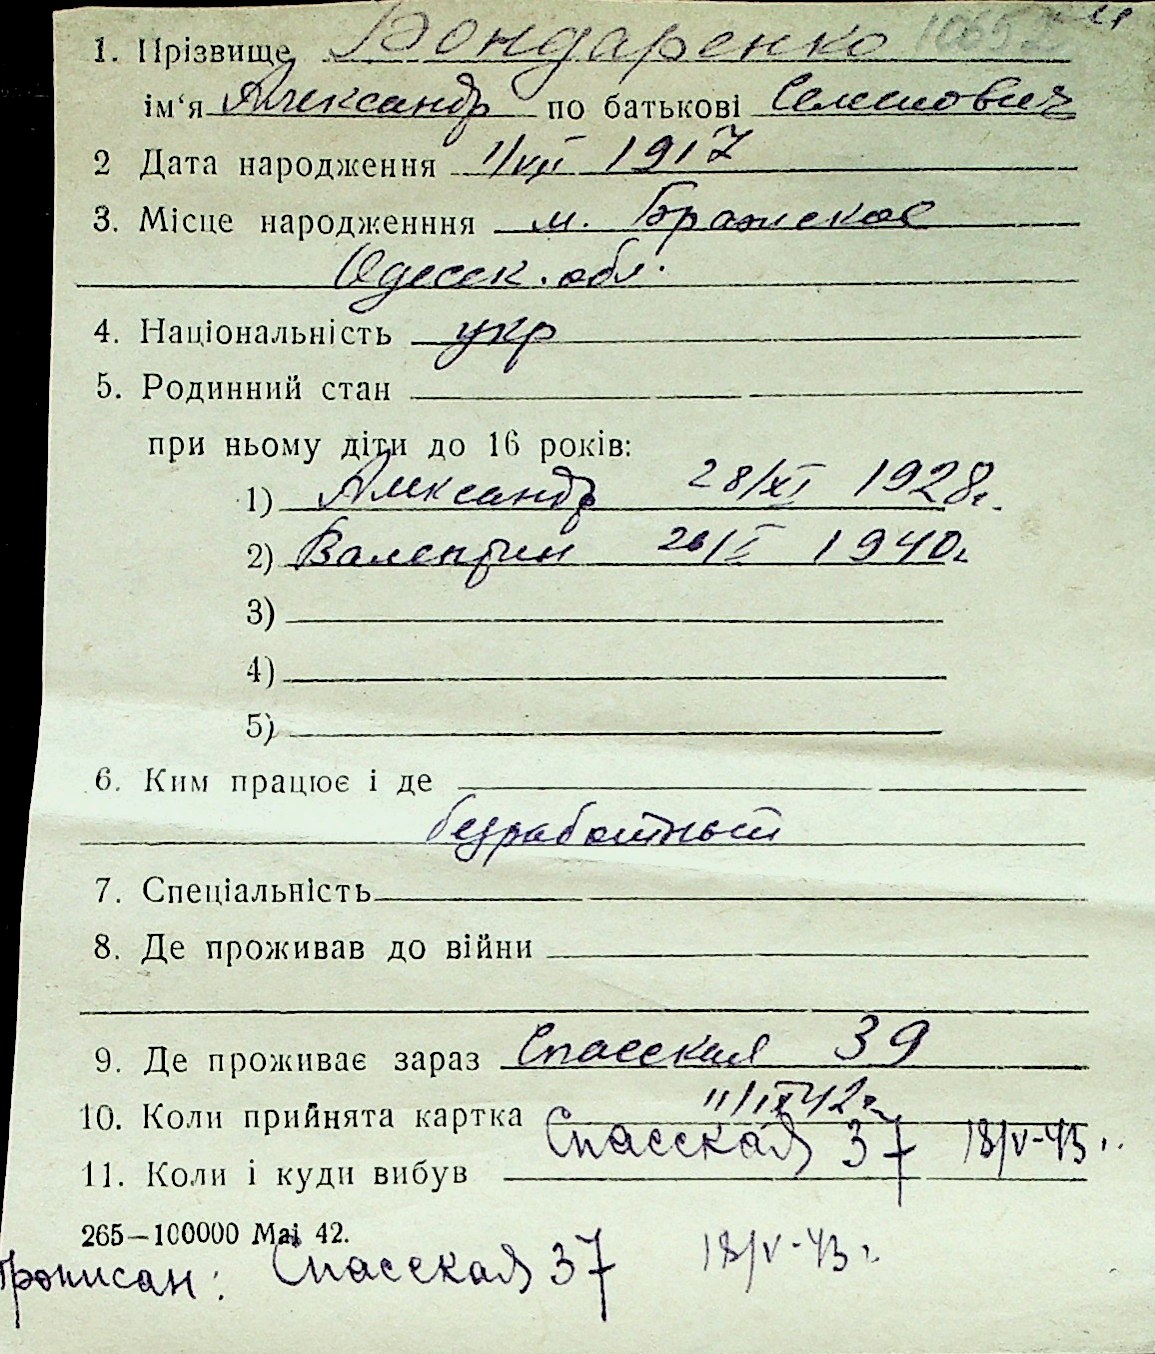 1. Прізвище Бондаренко
ім‘я Александр по батькові Семенович
2 Дата народження 1/VII 1917
3. Місце народженння м. Бражское
Одесск. обл.
4. Національність укр
5. Родинний стан
при ньому діти до 16 років:
1) Александр 28/XI 1928г.
2) Валентин 26/I 1940г
3)
4)
5)
6. Ким працює і де
безработный
7. Спеціальність
8. Де проживав до війни
9. Де проживає зараз Спасская 39
10. Коли прийнята картка 11/IX 42г
Спасская 37 18/V-43г.
11. Коли і куди вибув
265—100000 Маі 42.
прописан: Спасская 37 18/V-43г.